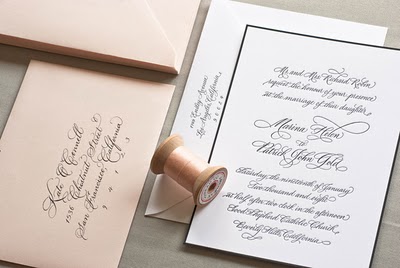 Kate O'Connell
1536 Chestnut Street
San Francisco, California
9 4 1 2 3
Los Angeles, California
Mr. and Mrs. Richard
request the honour of your presence
at the marriage of their daughter
Marina Helen
to
Patrick John
Saturday, the nineteenth of January
two thousand and eight
at half after two o'clock in the afternoon
Good Shepherd Catholic Church
Beverly Hills, California